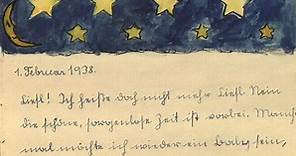 1. Februar 1938.
Liesl! Ich heiße doch nicht mehr Liesl Nein
die schöne, sorgenlose Zeit ist vorbei. Manch-
mal möchte ich wieder ein Baby sein,